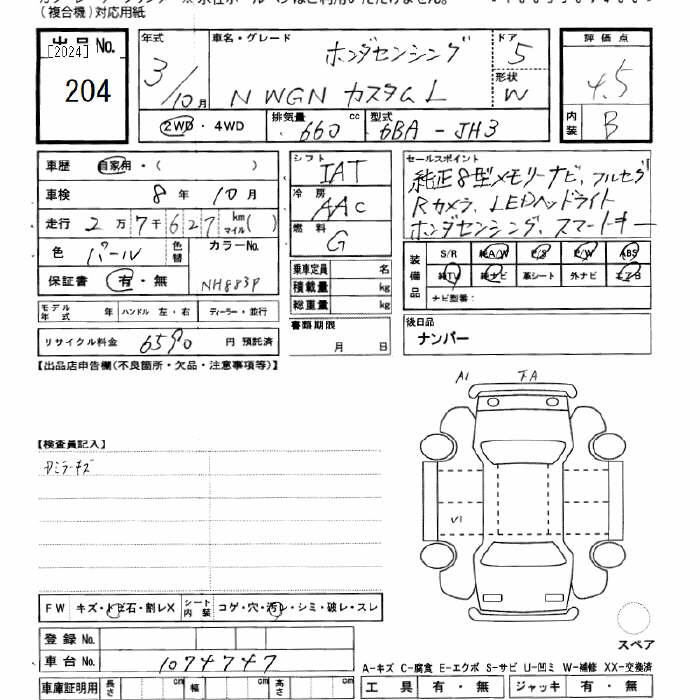 (複合機)対応用紙
出品 No.
[2024]
204
年式
3/10月
車名・グレード
ホンダセンシング
N WGN カスタム L
ドア
5
形状
W
2WD・4WD
排気量
660 cc
型式
6BA-JH3
評価点
4.5
内装
B
車歴 自家用・( )
車検 8年 10月
走行 2万7千627 km マイル( )
色 パール 色替
カラーNo.
NH883P
保証書 有・無
モデル年式 年 ハンドル 左・右 ディーラー・並行
リサイクル料金 6590 円 預託済
シフト IAT
冷房 AAC
燃料 G
乗車定員 名
積載量 kg
総重量 kg
書類期限
月 日
セールスポイント
純正8型メモリーナビ、フルセグ
Rカメラ、LEDヘッドライト
ホンダセンシング、スマートキー
装備品
S/R 純A/W P/S P/W ABS
純TV 純ナビ 革シート 外ナビ エアB
ナビ型番:
後日品
ナンバー
【出品店申告欄(不良箇所・欠品・注意事項等)】
A1
【検査員記入】
V1
FW キズ・トビ石・割レX シート内装 コゲ・穴・汚レ・シミ・破レ・スレ
登録 No.
車台 No. 1074747
スペア
A-キズ C-腐食 E-エクボ S-サビ U-凹ミ W-補修 XX-交換済
車庫証明用 長さ cm 幅 cm 高さ cm
工具 有・無 ジャッキ 有・無